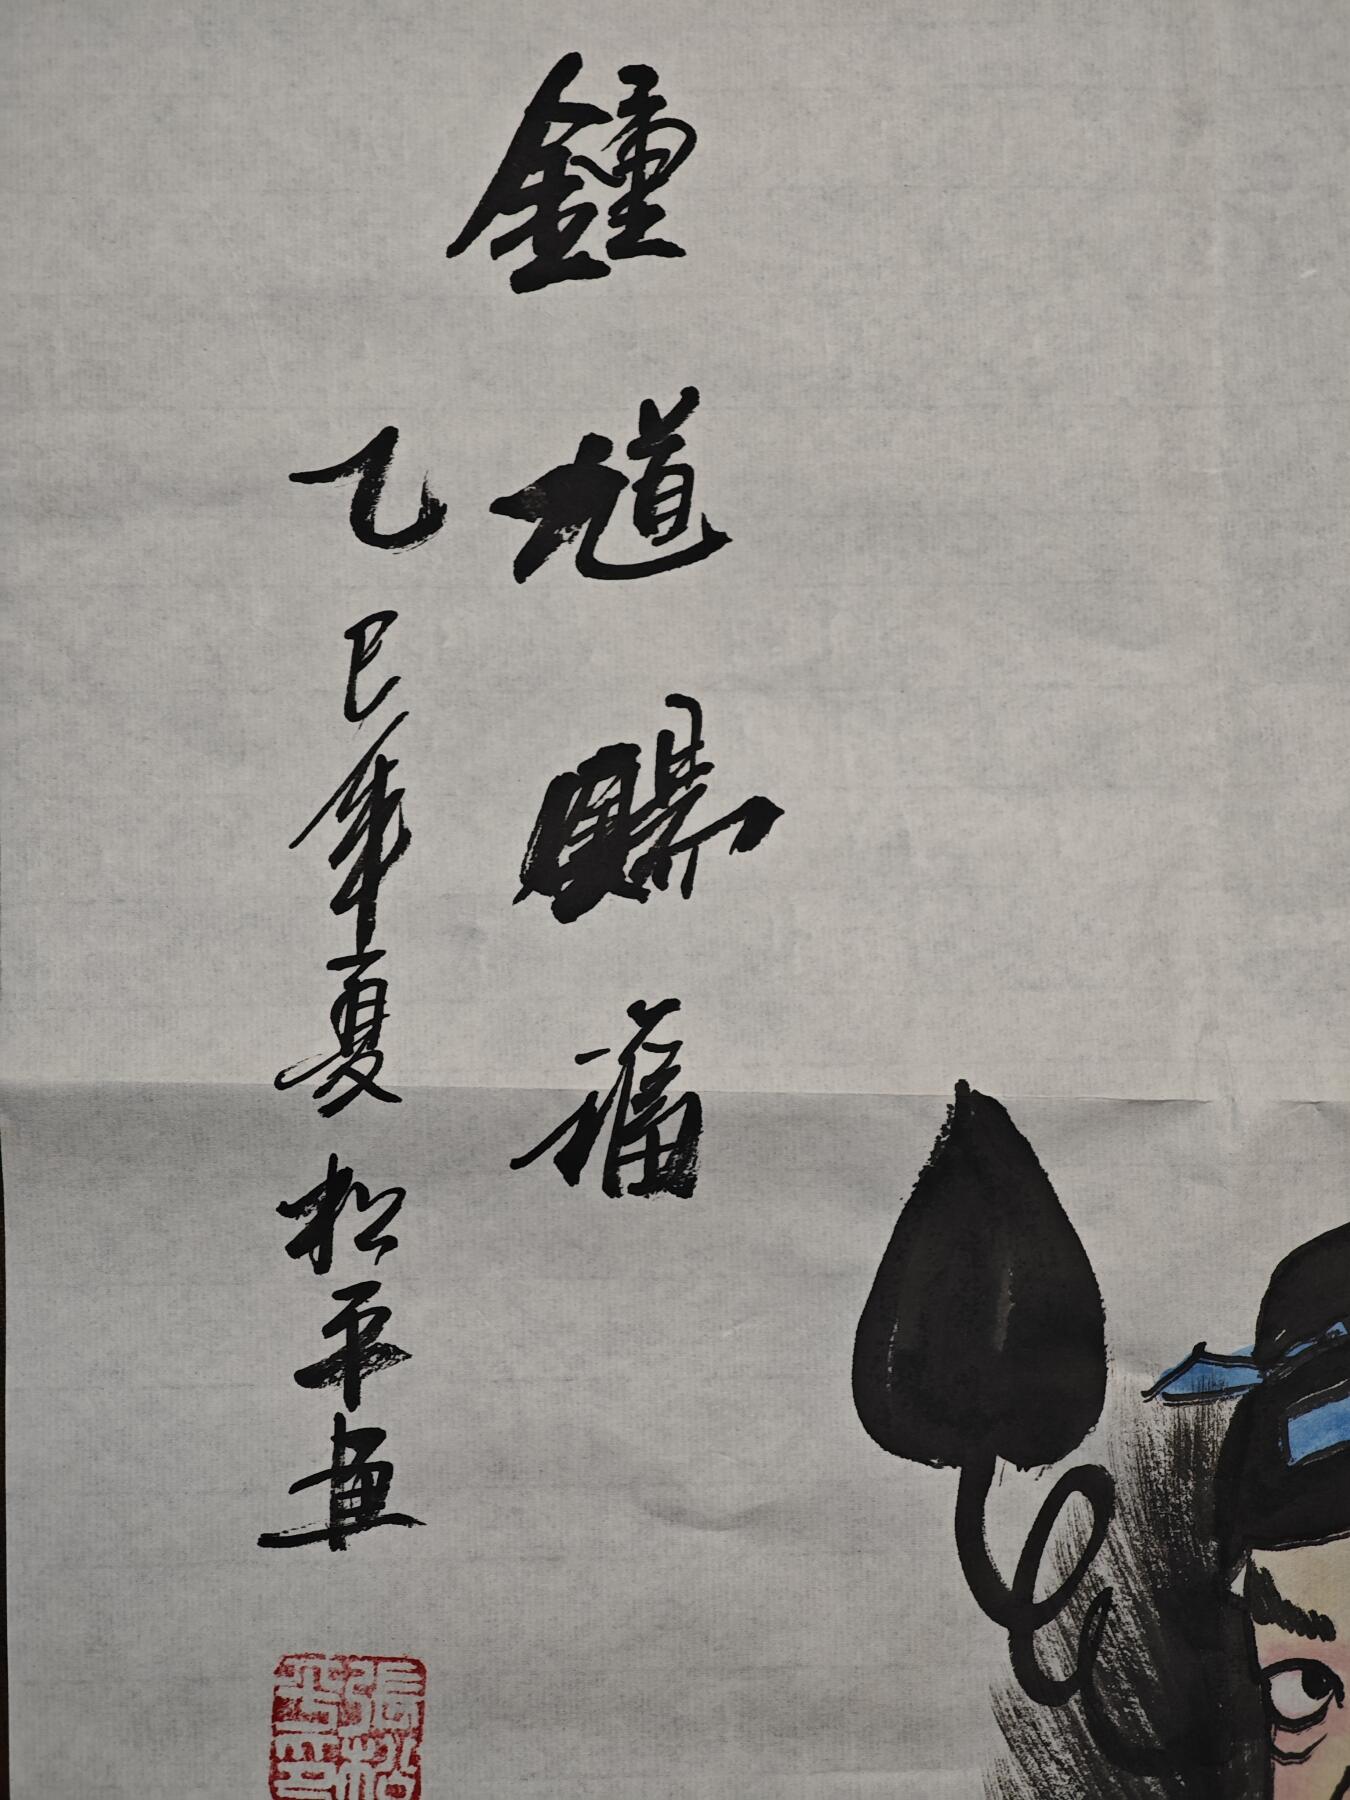 鍾馗賜福
乙巳年夏松平画
張松平印